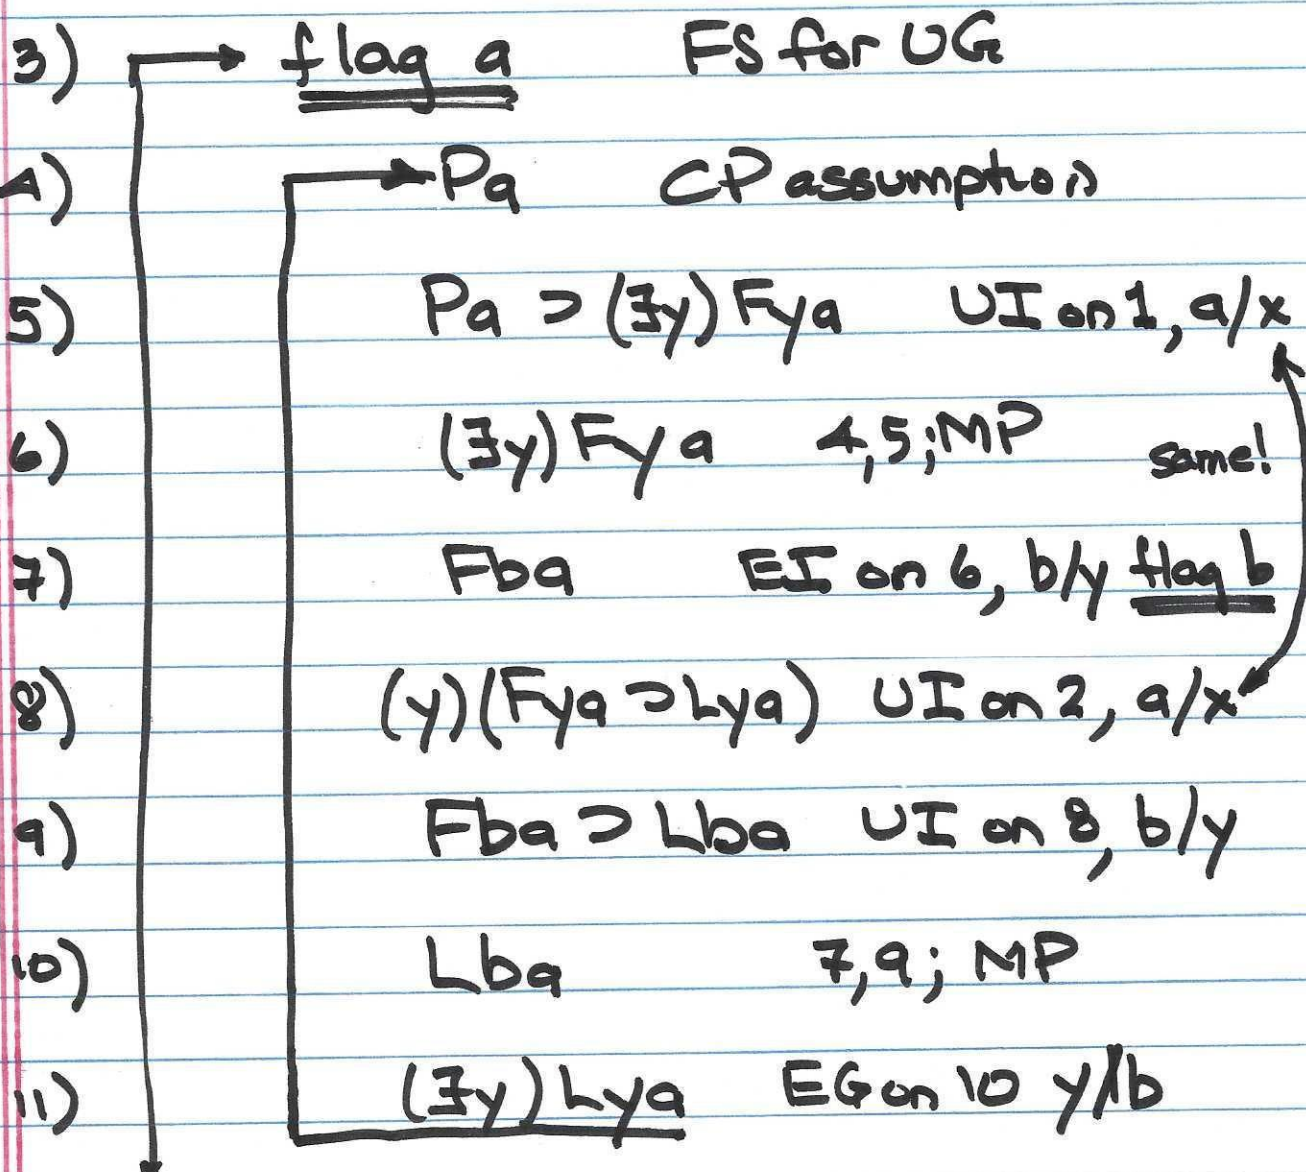 3) flag a FS for UG
4) Pa CP assumption
5) Pa ⊃ (∃y) Fya UI on 1, a/x
6) (∃y) Fya 4,5; MP same!
7) Fba EI on 6, b/y flag b
8) (y)(Fya ⊃ Lya) UI on 2, a/x
9) Fba ⊃ Lba UI on 8, b/y
10) Lba 7,9; MP
11) (∃y) Lya EG on 10 y/b